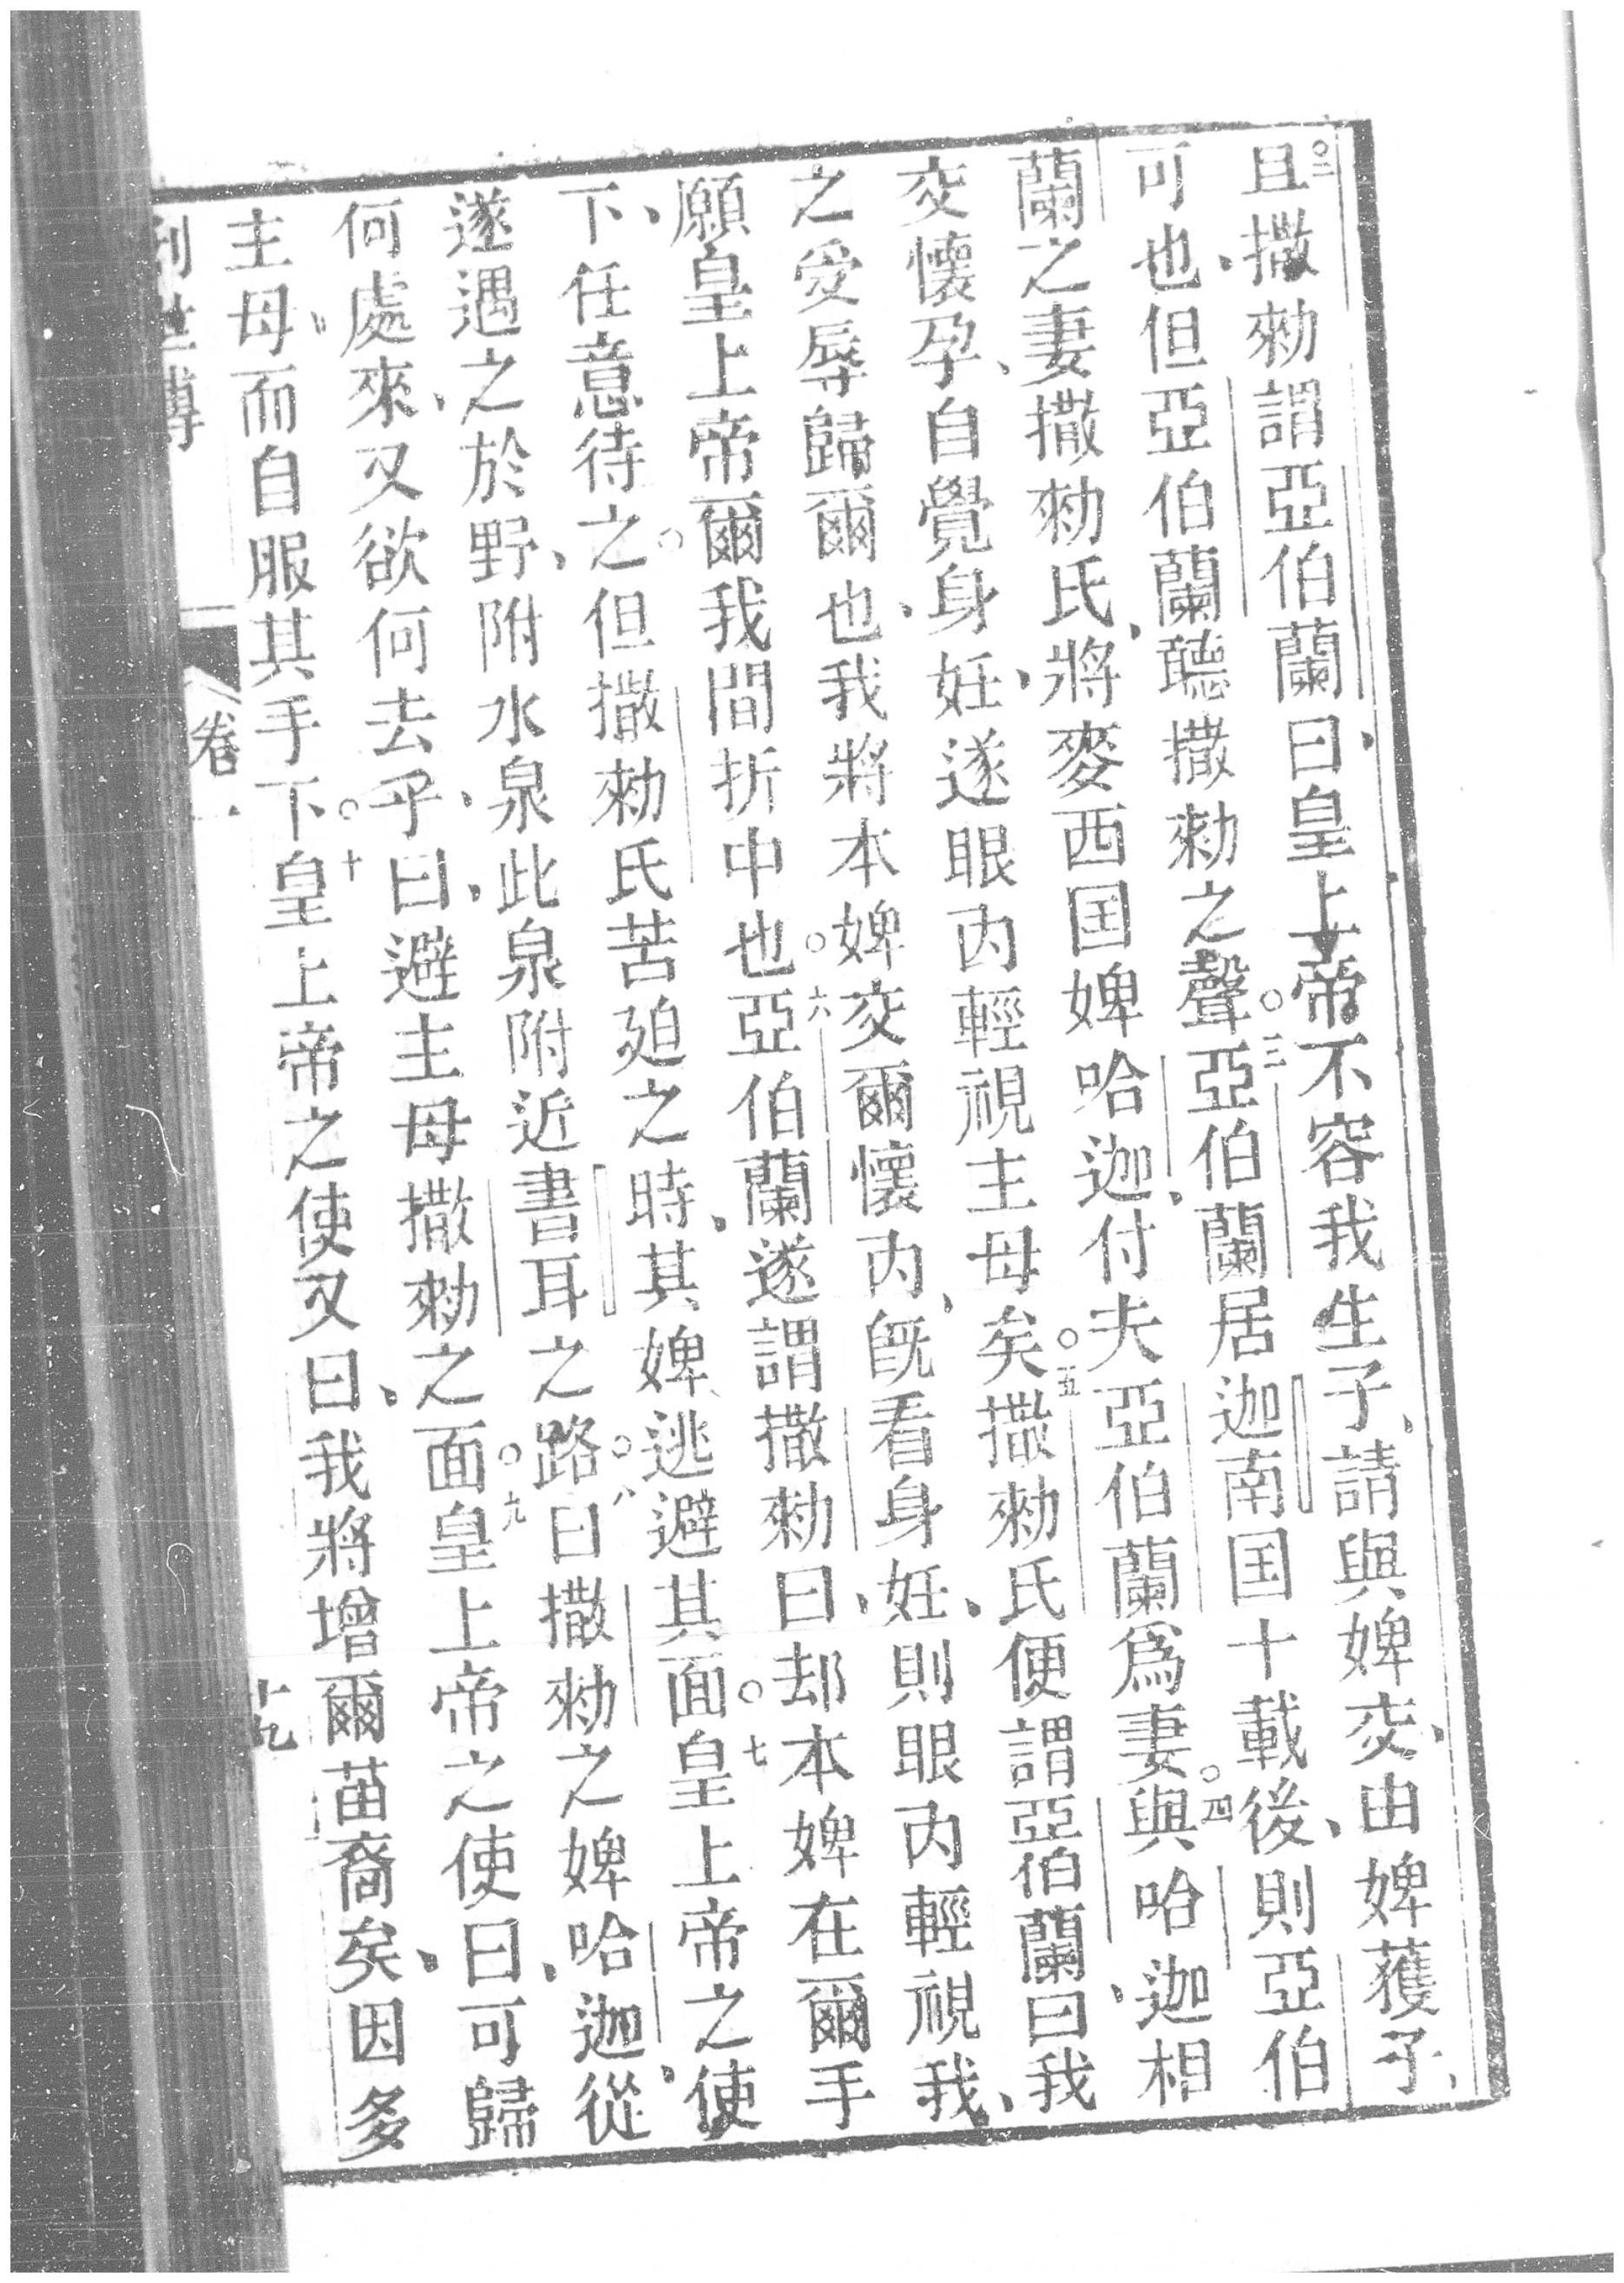 ○二且撒勑謂亞伯蘭曰、皇上帝不容我生子、請與婢交、由婢獲子、
可也、但亞伯蘭聽撒勑之聲○三亞伯蘭居迦南国十載後、則亞伯
蘭之妻撒勑氏、將麥西国婢哈迦、付夫亞伯蘭爲妻○四與哈迦相
交懷孕、自覺身妊、遂眼內輕視主母矣○五撒勑氏便謂亞伯蘭曰、我
之受辱歸爾也、我將本婢交爾懷內、旣看身妊、則眼內輕視我、
願皇上帝爾我間折中也○六亞伯蘭遂謂撒勑曰、却本婢在爾手
下、任意待之○但撒勑氏苦廹之時、其婢逃避其面○七皇上帝之使
遂遇之於野、附水泉、此泉附近書耳之路○八曰撒勑之婢哈迦、從
何處來、又欲何去乎、曰、避主母撒勑之面○九皇上帝之使曰、可歸
主母、而自服其手下○十皇上帝之使又曰、我將增爾苗裔矣、因多
創世傳 卷一 十九